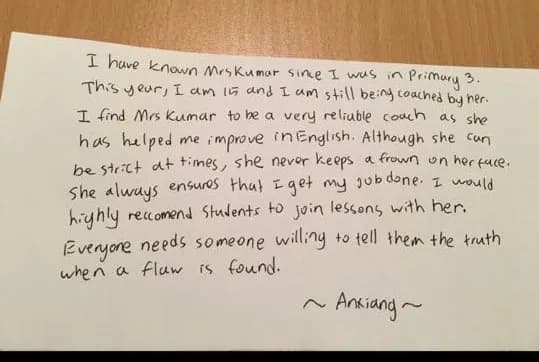 I have known Mrs Kumar since I was in Primary 3.
This year, I am 15 and I am still being coached by her.
I find Mrs Kumar to be a very reliable coach as she
has helped me improve in English. Although she can
be strict at times, she never keeps a frown on her face.
She always ensures that I get my job done. I would
highly reccomend students to join lessons with her.
Everyone needs someone willing to tell them the truth
when a flaw is found.
~ Anxiang ~